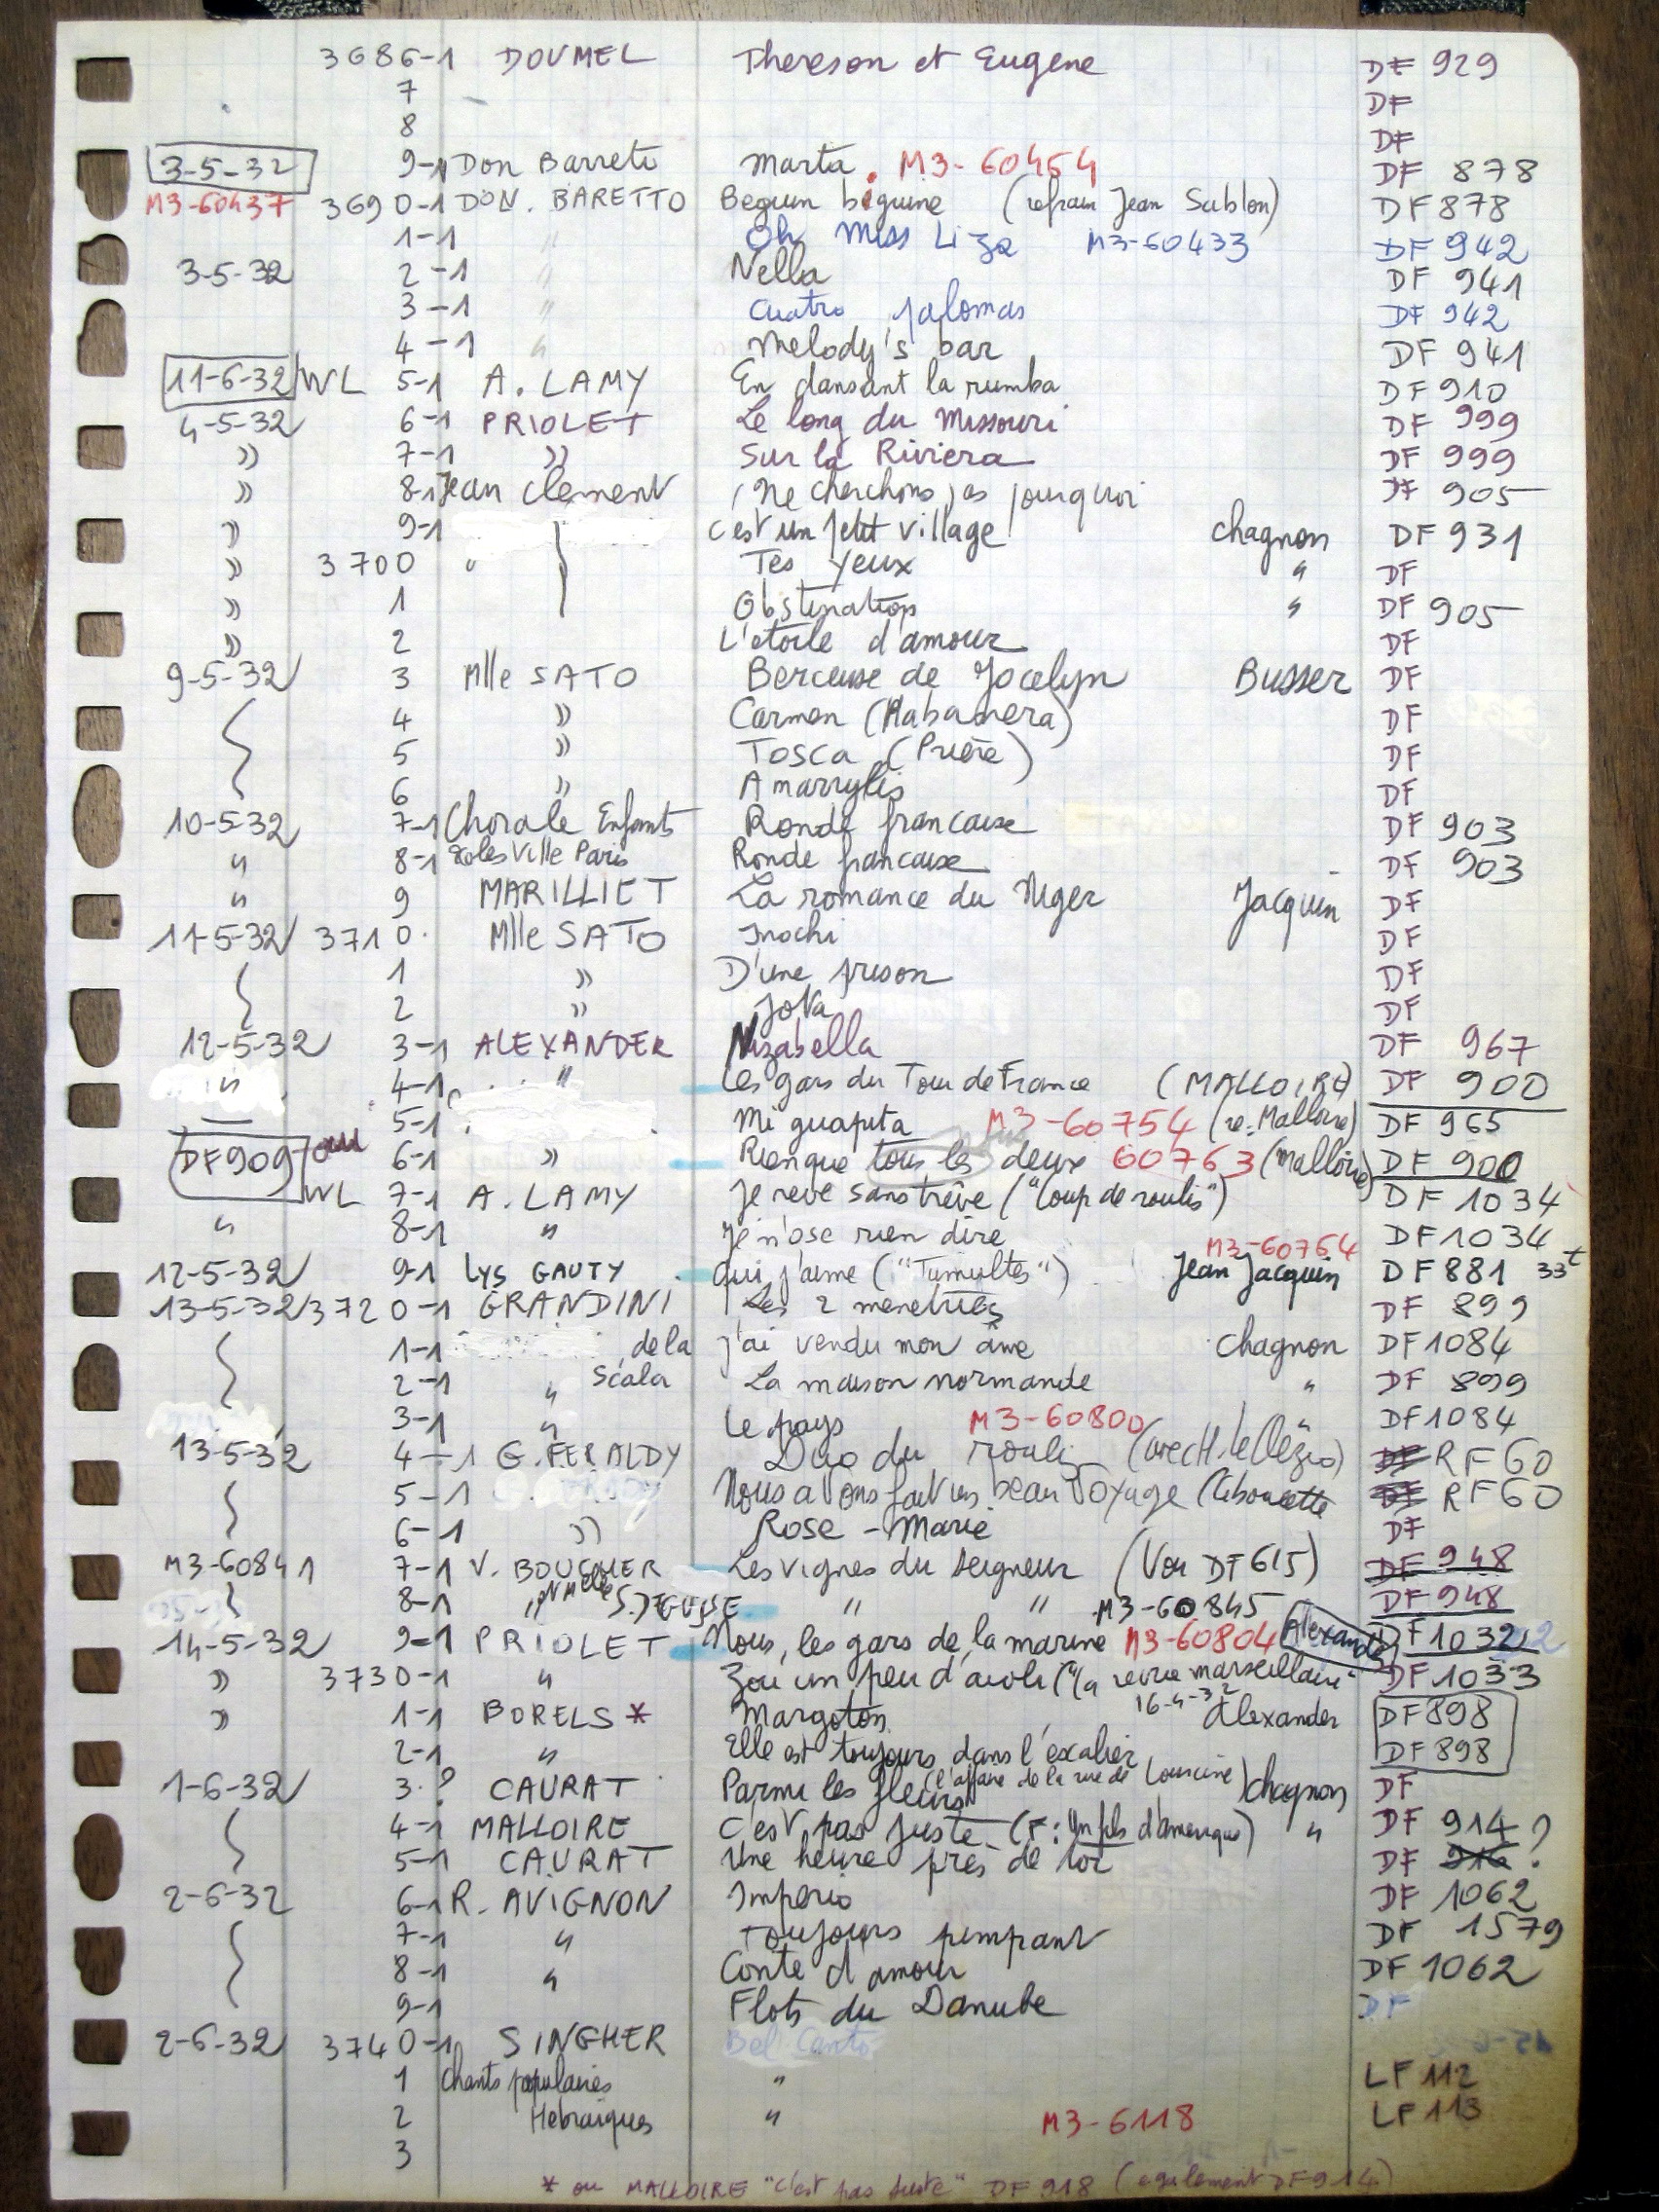 3686-1 DOUMEL Thereson et Eugene DF 929
7 DF
8 DF
3-5-32 9-1 Don Barreto Marta. M3-60454 DF 878
M3-60437 3690-1 DON. BARETTO Beguin biguine (refrain Jean Sablon) DF 878
1-1 " Oh Miss Liza M3-60433 DF 942
3-5-32 2-1 " Nella DF 941
3-1 " Cuatro palomas DF 942
4-1 " Melody's bar DF 941
11-6-32 WL 5-1 A. LAMY En dansant la rumba DF 910
4-5-32 6-1 PRIOLET Le long du Missouri DF 999
" 7-1 " Sur la Riviera DF 999
" 8-1 Jean Clement Ne cherchons pas pourquoi DF 905
" 9-1 c'est un petit village Chagnon DF 931
" 3700 " Tes Yeux " DF
" 1 Obstination " DF 905
" 2 L'etoile d'amour DF
9-5-32 3 Mlle SATO Berceuse de Jocelyn Busser DF
4 " Carmen (Habanera) DF
5 " Tosca (Prière) DF
6 " Amarrylis DF
10-5-32 7-1 Chorale Enfants Ronde francaise DF 903
" 8-1 Ecoles Ville Paris Ronde francaise DF 903
" 9 MARILLIET La romance du Niger Jacquin DF
11-5-32 3710 Mlle SATO Inochi DF
1 " D'une prison DF
2 " Jota DF
12-5-32 3-1 ALEXANDER Nizabella DF 967
" 4-1 " Les gars du Tour de France (MALLOIRE) DF 900
5-1 Mi guapita M3-60754 (re. Malloire) DF 965
DF 909 ou 6-1 " Rien que tous les deux 60763 (Malloire) DF 900
WL 7-1 A. LAMY Je reve sans trêve ("Coup de roulis") DF 1034
" 8-1 " Je n'ose rien dire DF 1034
M3-60764
12-5-32 9-1 Lys GAUTY Qui j'aime ("Tumultes") Jean Jacquin DF 881 33t
13-5-32 3720-1 GRANDINI Les 2 menetriers DF 899
1-1 de la J'ai vendu mon âme Chagnon DF 1084
2-1 " Scala La maison normande " DF 899
3-1 " Le pays M3-60800 " DF 1084
13-5-32 4-1 G. FERALDY Duo du roulis (avec H. le Clézio) DF RF 60
5-1 Nous avons fait un beau voyage (Ciboulette DF RF 60
6-1 " Rose-Marie DF
M3-60841 7-1 V. BOUCHER Les vignes du seigneur (Voir DF 615) DF 948
8-1 " " " M3-60845 DF 948
14-5-32 9-1 PRIOLET Nous, les gars de la marine M3-60804 Alexander DF 1032
" 3730-1 " Zou un peu d'aioli ("la revue marseillaise" DF 1033
16-4-32
" 1-1 BORELS * Margoton Alexander DF 898
2-1 " Elle est toujours dans l'escalier DF 898
1-6-32 3.? CAURAT Parmi les fleurs (l'affaire de la rue de Lourcine) Chagnon DF
4-1 MALLOIRE C'est pas juste (F: Un fils d'amerique) " DF 914 ?
5-1 CAURAT Une heure près de toi DF 916 ?
2-6-32 6-1 R. AVIGNON Imperio DF 1062
7-1 " Toujours pimpant DF 1579
8-1 " Conte d'amour DF 1062
9-1 Flots du Danube DF
2-6-32 3740-1 SINGHER Bel Canto
1 Chants populaires " LF 112
2 Hebraiques " M3-6118 LF 113
3
* ou MALLOIRE "C'est pas juste" DF 918 (egalement DF 914)